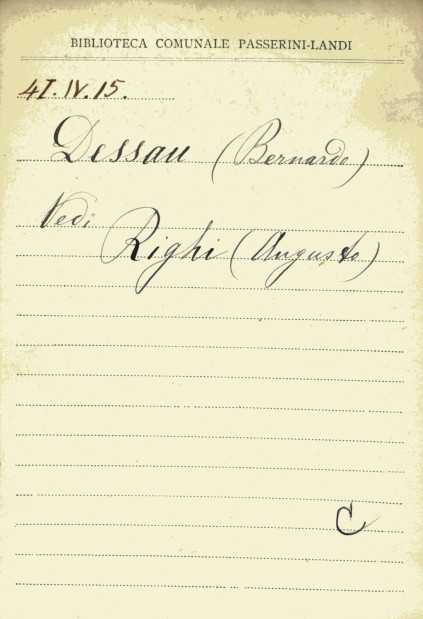 BIBLIOTECA COMUNALE PASSERINI-LANDI
4I.IV.15.
Dessau (Bernardo)
Vedi
Righi (Augusto)
C